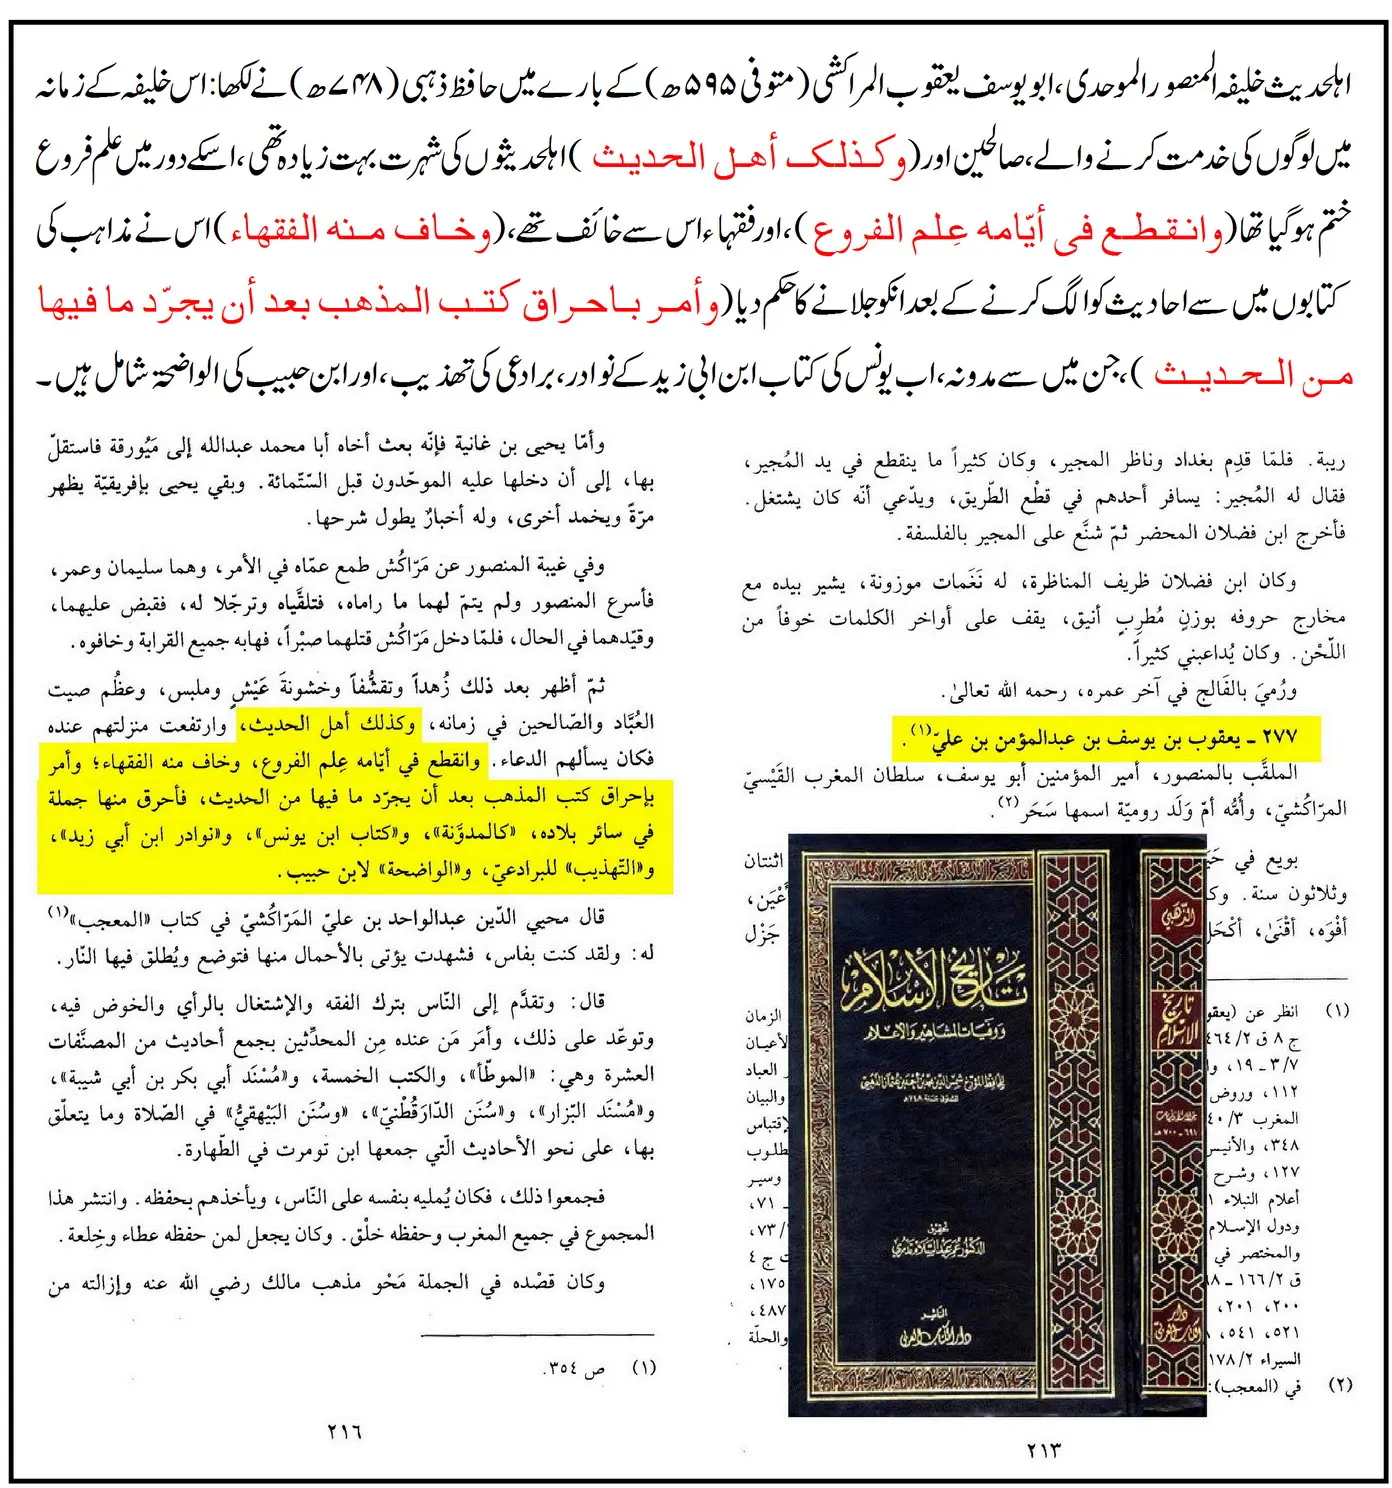 اہلحدیث خلیفہ المنصور الموحدی، ابو یوسف یعقوب المراکشی (متوفی ۵۹۵ھ) کے بارے میں حافظ ذہبی (۷۴۸ھ) نے لکھا: اس خلیفہ کے زمانہ
میں لوگوں کی خدمت کرنے والے، صالحین اور (وکذلک أهل الحديث) اہلحدیثوں کی شہرت بہت زیادہ تھی، اسکے دور میں علم فروع
ختم ہو گیا تھا (وانقطع فی أيّامه عِلم الفروع)، اور فقہاء اس سے خائف تھے، (وخاف منه الفقهاء) اس نے مذاہب کی
کتابوں میں سے احادیث کو الگ کرنے کے بعد انکو جلانے کا حکم دیا (وأمر باحراق كتب المذهب بعد أن يجرّد ما فيها
من الحديث)، جن میں سے مدونہ، اب یونس کی کتاب ابن ابی زید کے نوادر، برادعی کی تھذیب، اور ابن حبیب کی الواضحۃ شامل ہیں۔
ريبة. فلمّا قدِم بغداد وناظر المجير، وكان كثيراً ما ينقطع في يد المُجير،
فقال له المُجير: يسافر أحدهم في قطْع الطّريق، ويدّعي أنّه كان يشتغل.
فأخرج ابن فضلان المحضر ثمّ شنَّع على المجير بالفلسفة.
وكان ابن فضلان ظريف المناظرة، له نَغَمات موزونة، يشير بيده مع
مخارج حروفه بوزنٍ مُطرِبٍ أنيق، يقف على أواخر الكلمات خوفاً من
اللّحْن. وكان يُداعبني كثيراً.
ورُميَ بالفَالج في آخر عمره، رحمه الله تعالىٰ.
٢٧٧ ـ يعقوب بن يوسف بن عبدالمؤمن بن عليّ(١).
الملقَّب بالمنصور، أمير المؤمنين أبو يوسف، سلطان المغرب القَيْسيّ
المرّاكُشيّ، وأُمُّه أمّ وَلَد روميّة اسمها سَحَر(٢).
بويع في اثنتان
وثلاثون سنة. أَعْيَن،
أفْوَه، أقْنَىٰ، أكْحَل جَزْل
(١) انظر عن الزمان
ج ٨ ق ٢/ ٤٦٤ الأعيان
٣/٧ ـ ١٩، العباد
١١٢، وروض والبيان
المغرب ٣/ الإقتباس
٣٤٨، والأنيس
١٢٧، وشرح وسير
أعلام النبلاء ٧١،
ودول الإسلام ٧٣،
والمختصر في ج ٤
ق ٢/ ١٦٦ ١٧٥،
٢٠٠، ٢٠١، ٤٨٧،
٥٢١، ٥٤١، والحلّة
السيراء ٢/ ١٧٨
(٢) في (المعجب):
٢١٣
تاريخ الإسلام
ووفيات المشاهير والأعلام
تحقيق
الدكتور عمر عبد السلام تدمري
الناشر
دار الكتاب العربي
الذهبي
تاريخ الإسلام
دار الكتاب العربي
وأمّا يحيى بن غانية فإنّه بعث أخاه أبا محمد عبدالله إلى مَيُورقة فاستقلّ
بها، إلى أن دخلها عليه الموحّدون قبل السّتّمائة. وبقي يحيى بإفريقيّة يظهر
مرّةً ويخمد أخرى، وله أخبارٌ يطول شرحها.
وفي غيبة المنصور عن مَرّاكُش طمع عمّاه في الأمر، وهما سليمان وعمر،
فأسرع المنصور ولم يتمّ لهما ما راماه، فتلقَّياه وترجّلا له، فقبض عليهما،
وقيّدهما في الحال، فلمّا دخل مَرّاكُش قتلهما صبْراً، فهابه جميع القرابة وخافوه.
ثمّ أظهر بعد ذلك زُهداً وتقشُّفاً وخشونةَ عَيْشٍ وملبس، وعظُم صيت
العُبَّاد والصّالحين في زمانه، وكذلك أهل الحديث، وارتفعت منزلتهم عنده
فكان يسألهم الدعاء. وانقطع في أيّامه عِلم الفروع، وخاف منه الفقهاء؛ وأمر
بإحراق كتب المذهب بعد أن يجرّد ما فيها من الحديث، فأحرق منها جملة
في سائر بلاده، «كالمدوَّنة»، و«كتاب ابن يونس»، و«نوادر ابن أبي زيد»،
و«التّهذيب» للبرادعيّ، و«الواضحة» لابن حبيب.
قال محيي الدّين عبدالواحد بن عليّ المَرّاكُشيّ في كتاب «المعجب»(١)
له: ولقد كنت بفاس، فشهدت يؤتى بالأحمال منها فتوضع ويُطلق فيها النّار.
قال: وتقدَّم إلى النّاس بترك الفقه والإشتغال بالرأي والخوض فيه،
وتوعّد على ذلك، وأمَر مَن عنده مِن المحدِّثين بجمع أحاديث من المصنَّفات
العشرة وهي: «الموطّأ»، والكتب الخمسة، و«مُسْنَد أبي بكر بن أبي شيبة»،
و«مُسْنَد البّزار»، و«سُنَن الدّارَقُطْنيّ»، و«سُنَن البَيْهقيُّ» في الصّلاة وما يتعلّق
بها، على نحو الأحاديث الّتي جمعها ابن تومرت في الطّهارة.
فجمعوا ذلك، فكان يُمليه بنفسه على النّاس، ويأخذهم بحفظه. وانتشر هذا
المجموع في جميع المغرب وحفظه خلْق. وكان يجعل لمن حفظه عطاء وخِلعة.
وكان قصْده في الجملة مَحْو مذهب مالك رضي الله عنه وإزالته من
(١) ص ٣٥٤.
٢١٦